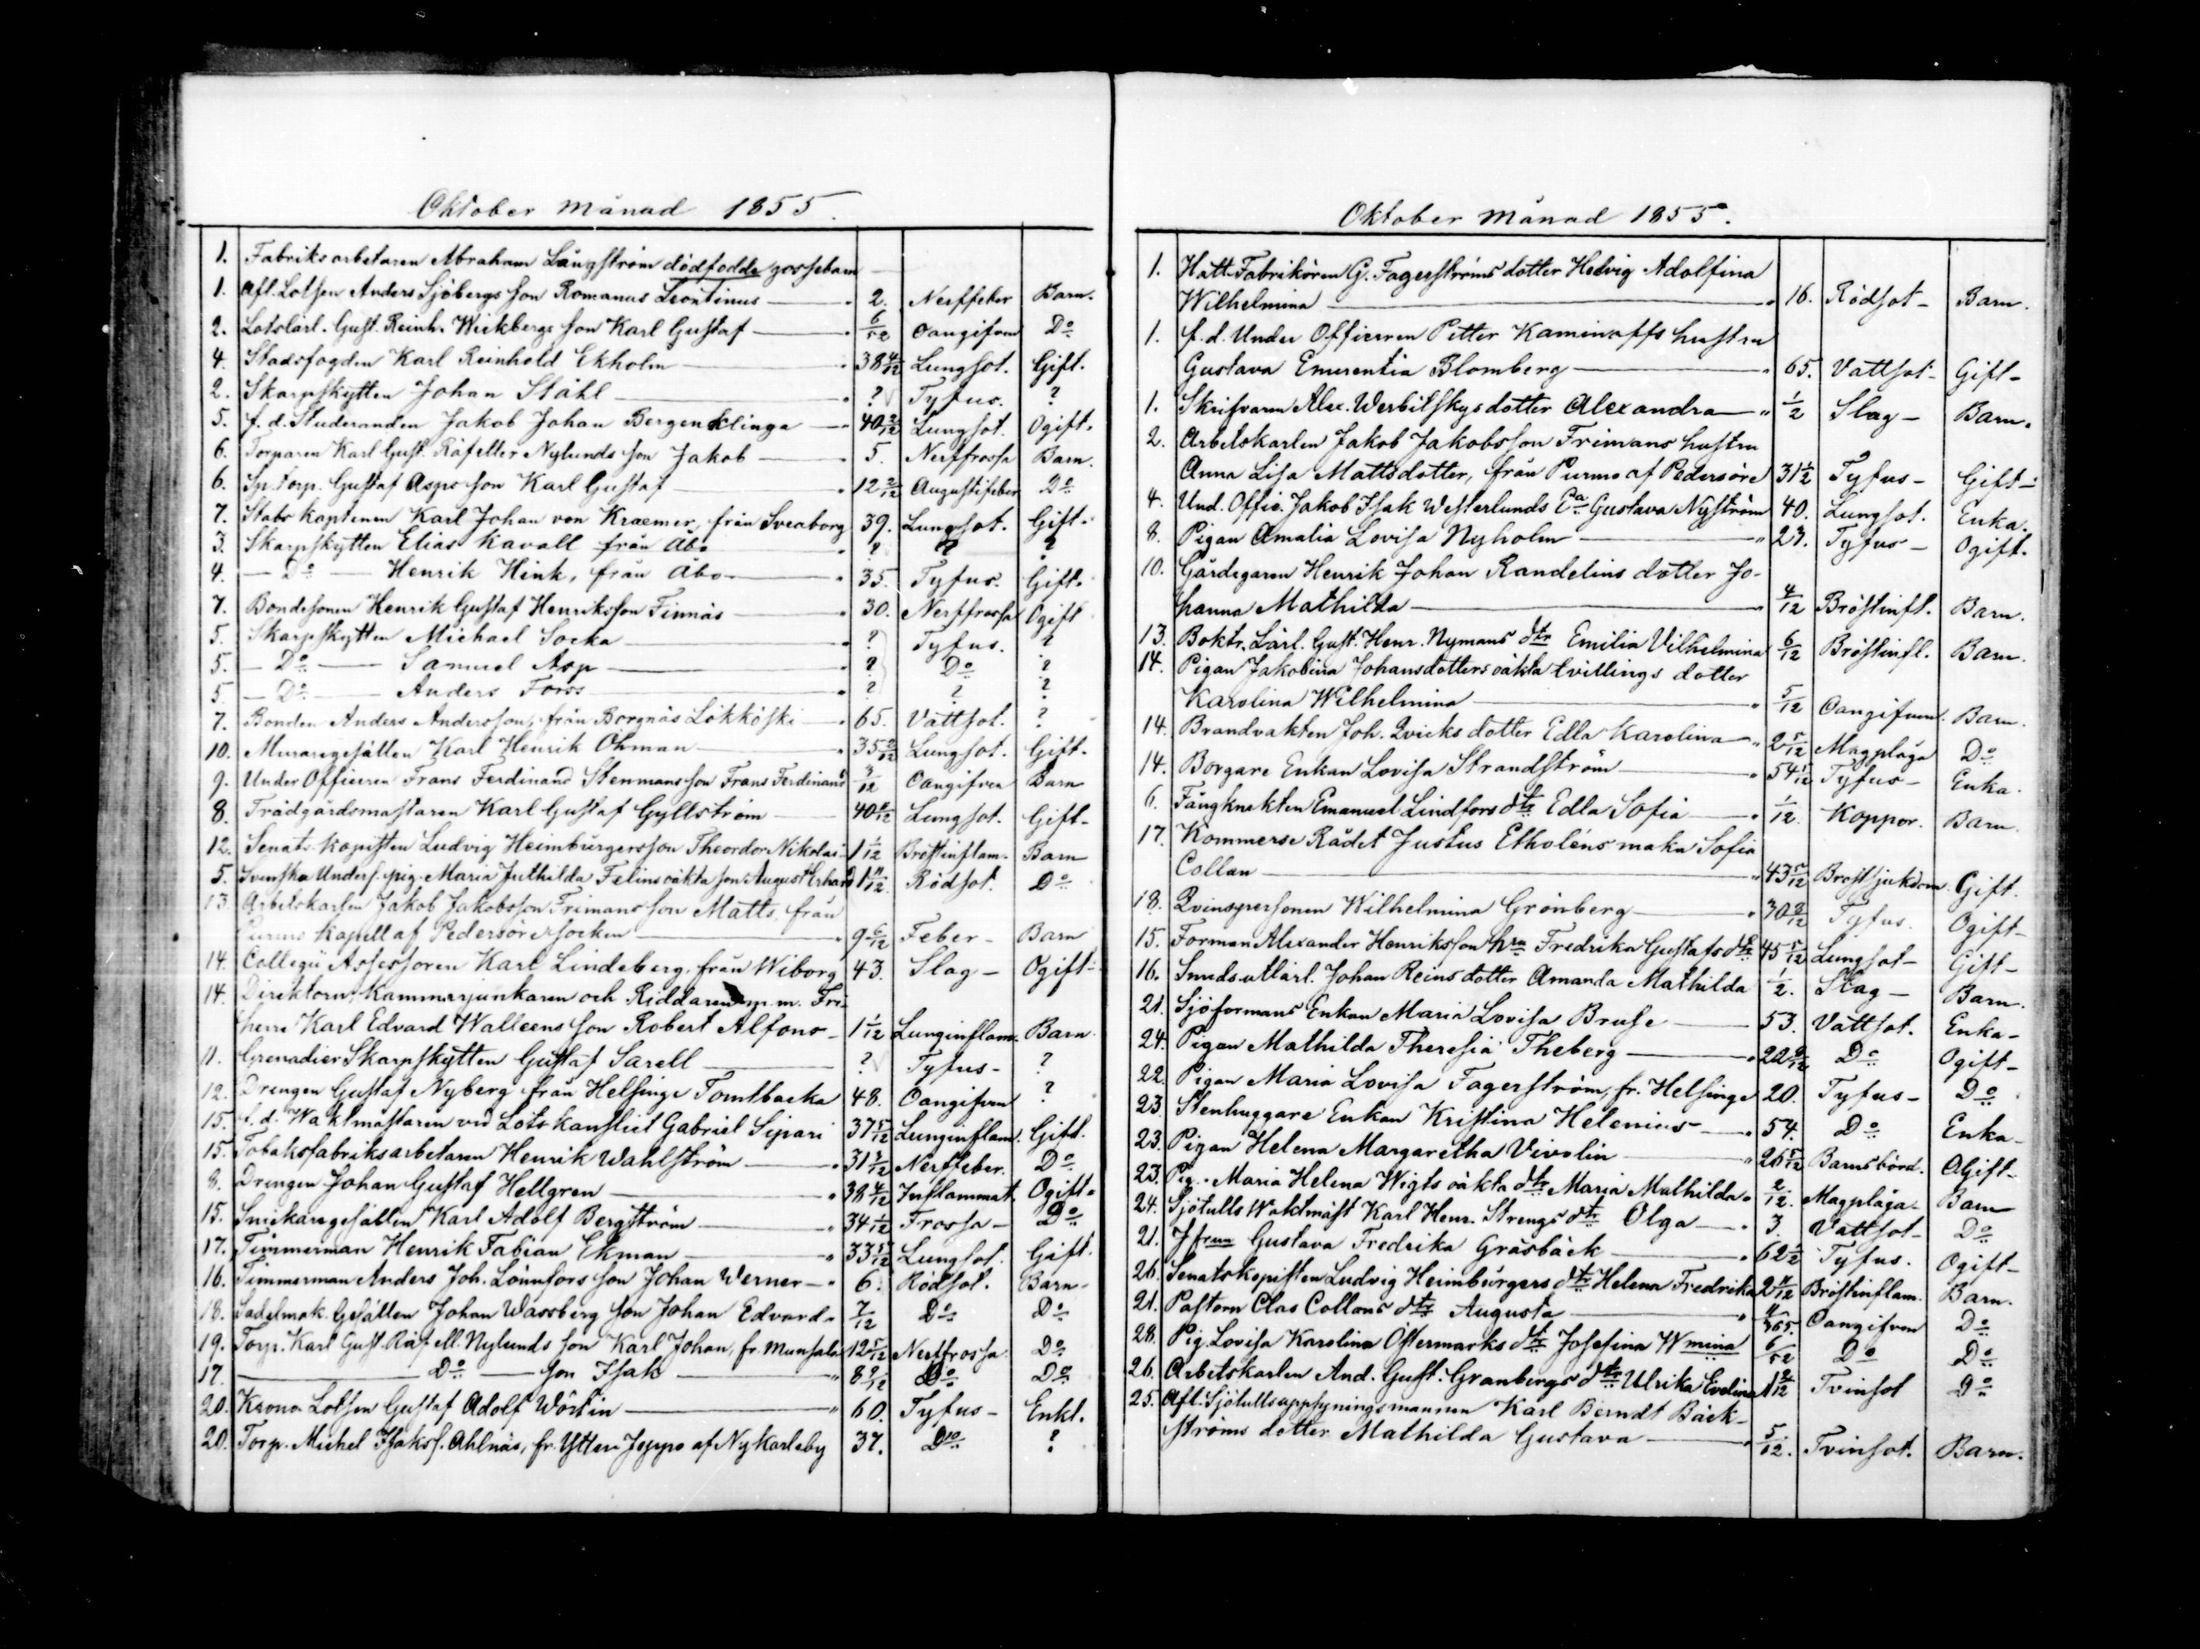 Oktober månad 1855.
1. Fabriksarbetaren Abraham Långström dödfödde gossebarn —
1. Afl. Lotsen Anders Sjöbergs son Romanus Leontinus — 2. Nerffeber Barn.
2. Lotslärl. Gust. Reinh. Wickbergs son Karl Gustaf — 6/52 Oangifven Do
4. Stadsfogden Karl Reinhold Ekholm — 38 4/12 Lungsot. Gift.
2. Skarpskytten Johan Ståhl — ? Tyfus. ?
5. f.d. Studeranden Jakob Johan Bergenklinga — 40 2/12 Lungsot. Ogift.
6. Torparen Karl Gust. Räfeller Nylunds son Jakob — 5. Nerffrossa Barn.
6. Sp. torp. Gustaf Asps son Karl Gustaf — 12 2/12 Augustifeber Do
7. Stabs kaptenen Karl Johan von Kraemer, från Sveaborg 39. Lungsot. Gift.
3. Skarpskytten Elias Kavall från Åbo ? ? ?
4. — Do — Henrik Hink, från Åbo — 35. Tyfus. Gift.
7. Bondesonen Henrik Gustaf Henriksson Finnäs — 30. Nerffrossa Ogift
5. Skarpskytten Michael Socka — ? Tyfus. ?
5. — Do — Samuel Asp — ? Do ?
5 — Do — Anders Forss — ? ? ?
7. Bonden Anders Andersson, från Borgnäs Lökköski — 65. Vattsot. ?
10. Muraregesällen Karl Henrik Öhman — 35 2/12 Lungsot. Gift.
9. Under Officeren Frans Ferdinand Stenmans son Frans Ferdinand 3/12 Oangifven Barn
8. Trädgårdsmästaren Karl Gustaf Gyllström — 40 6/12 Lungsot. Gift-
12. Senats kopisten Ludvig Heimbürgers son Theordor Nikolai 1 1/12 Bröstinflam. Barn
5. Svenska Unders. pig. Maria Juthilda Felins oäkta son August Erhard 1 11/12. Rödsot. Do
13. Arbetskarlen Jakob Jakobsson Frimans son Matts, från
Purmo kapell af Pedersöre socken — 9 6/12 Feber- Barn
14. Collegii Assessoren Karl Lindeberg, från Wiborg 43. Slag- Ogift-
14. Direktorn, Kammarjunkaren och Riddaren m.m. Fri-
herre Karl Edvard Walleens son Robert Alfons- 1 1/12 Lunginflam. Barn.
11. Grenadier Skarpskytten Gustaf Sarell — ? Tyfus- ?
12. Drengen Gustaf Nyberg från Helsinge Tomtbacka 48. Oangifven ?
15. f.d. Waktmästaren vid Lots kansliet Gabriel Sipari 37 5/12 Lunginflam. Gift.
15. Tobaksfabriksarbetaren Henrik Wahlström — 31 3/12 Nerffeber. Do
8. Drengen Johan Gustaf Hellgren — 38 4/12 Inflammat. Ogift.
15. Snickaregesällen Karl Adolf Bergström — 34 1/12 Frossa- Do
17. Timmerman Henrik Fabian Ekman — 33 /12 Lungsot. Gift.
16. Timmerman Anders Joh. Lönnfors son Johan Werner- 6. Rödsot. Barn-
18. Sadelmak. Gesällen Johan Wassberg son Johan Edvard- 7/12 Do Do
19. Torp. Karl Gust. Räfell. Nylunds son Karl Johan, fr. Munsala 12 5/12 Nerffrossa Do
17. — Do — son Isak — 8 9/12 Do Do
20. Krono Lotsen Gustaf Adolf Wörtin — 60. Tyfus- Enkl.
20. Torp. Michel Isakss. Ahlnäs, fr. Ytter Jeppo af Nykarleby 37. Do ?
Oktober månad 1855.
1. Hatt-Fabrikören G. Fagerströms dotter Hedvig Adolfina
Wilhelmina — 16. Rödsot- Barn.
1. f.d. Under Officeren Petter Kaminoffs hustru
Gustava Emerentia Blomberg — 65. Vattsot- Gift-
1. Skrifvaren Alex. Werbitskys dotter Alexandra — 1/2 Slag- Barn.
2. Arbetskarlen Jakob Jakobsson Frimans hustru
Anna Lisa Mattsdotter, från Purmo af Pedersöre 31 1/2 Tyfus- Gift-
4. Und. Offic. Jakob Isak Westerlunds Ea Gustava Nyström 40. Lungsot. Enka.
8. Pigan Amalia Lovisa Nyholm — 23. Tyfus- Ogift.
10. Gårdegaren Henrik Johan Randelins dotter Jo-
hanna Mathilda — 4/12 Bröstinfl. Barn.
13. Boktr. Lärl. Gust. Henr. Nymans dtr Emilia Vilhelmina 6/12 Bröstinfl. Barn.
14. Pigan Jakobina Johansdotters oäkta tvillings dotter
Karolina Wilhelmina — 5/12 Oangifven. Barn.
14. Brandvakten Joh. Qvicks dotter Edla Karolina- 2 5/12 Magplåga Do
14. Borgare Enkan Lovisa Strandström — 54 1/12 Tyfus- Enka.
6. Fångknekten Emanuel Lindfors dtr Edla Sofia — 1/12. Koppor. Barn.
17. Kommerse Rådet Justus Etholéns maka Sofia
Collan — 43 5/12 Bröstsjukdom Gift.
18. Qvinspersonen Wilhelmina Grönberg — 30 8/12 Tyfus. Ogift-
15. Forman Alexander Henriksson hru Fredrika Gustafs dtr 45 5/12 Lungsot- Gift-
16. Smedsuttlärl. Johan Reins dotter Amanda Mathilda 1/2. Slag- Barn.
21. Sjöformans Enkan Maria Lovisa Bruse — 53. Vattsot. Enka-
24. Pigan Mathilda Theresia Theberg — 22 9/12 Do Ogift-
22. Pigan Maria Lovisa Fagerström, fr. Helsinge 20. Tyfus- Do
23. Stenhuggare Enkan Kristina Helenius — 54. Do Enka-
23. Pigan Helena Margaretha Vivolin — 26 5/12 Barnsbörd. Ogift-
23. Pig. Maria Helena Wigts oäkta dtr Maria Mathilda. 2/12. Magplåga- Barn
24. Sjötulls Waktmäst Karl Henr. Strengs dtr Olga — 3. Vattsot- Do
21. Jfrun Gustava Fredrika Gräsbäck — 62 1/2 Tyfus. Ogift-
26. Senatskopisten Ludvig Heimbürgers dtr Helena Fredrika 2 11/12 Bröstinflam. Barn.
21. Pastorn Clas Collans dtr Augusta — 4/365. Oangifven Do
28. Pig. Lovisa Karolina Östermarks dtr Josefina Wmina 6/52 Do Do
26. Arbetskarlen And. Gust. Granbergs dtr Ulrika Evelina 1 8/12 Tvinsot Do
25. Afl. Sjötullsuppsyningsmannen Karl Berndt Bäck-
ströms dotter Mathilda Gustava — 5/12. Tvinsot. Barn.